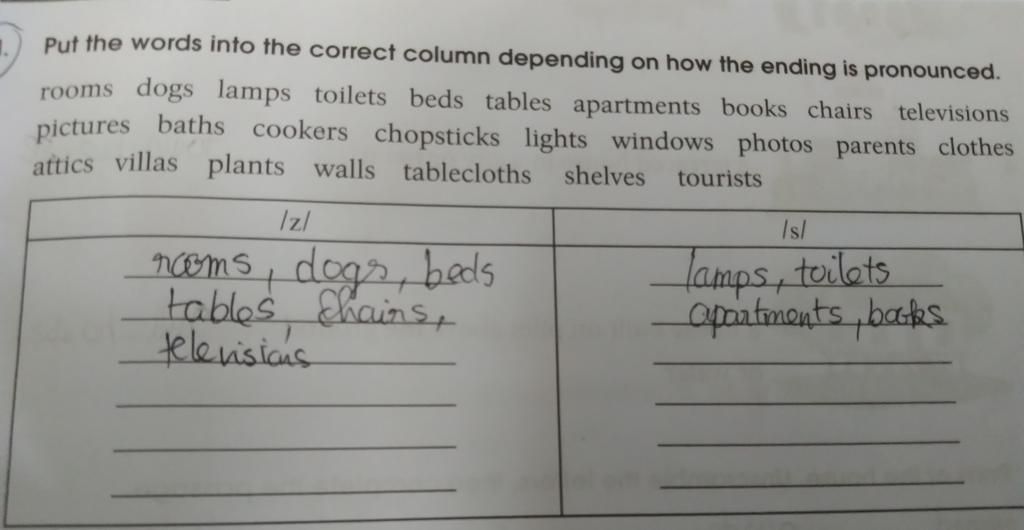 1. Put the words into the correct column depending on how the ending is pronounced.
rooms dogs lamps toilets beds tables apartments books chairs televisions
pictures baths cookers chopsticks lights windows photos parents clothes
attics villas plants walls tablecloths shelves tourists
/z/ /s/
rooms, dogs, beds lamps, toilets
tables, chairs, apartments, books
televisions